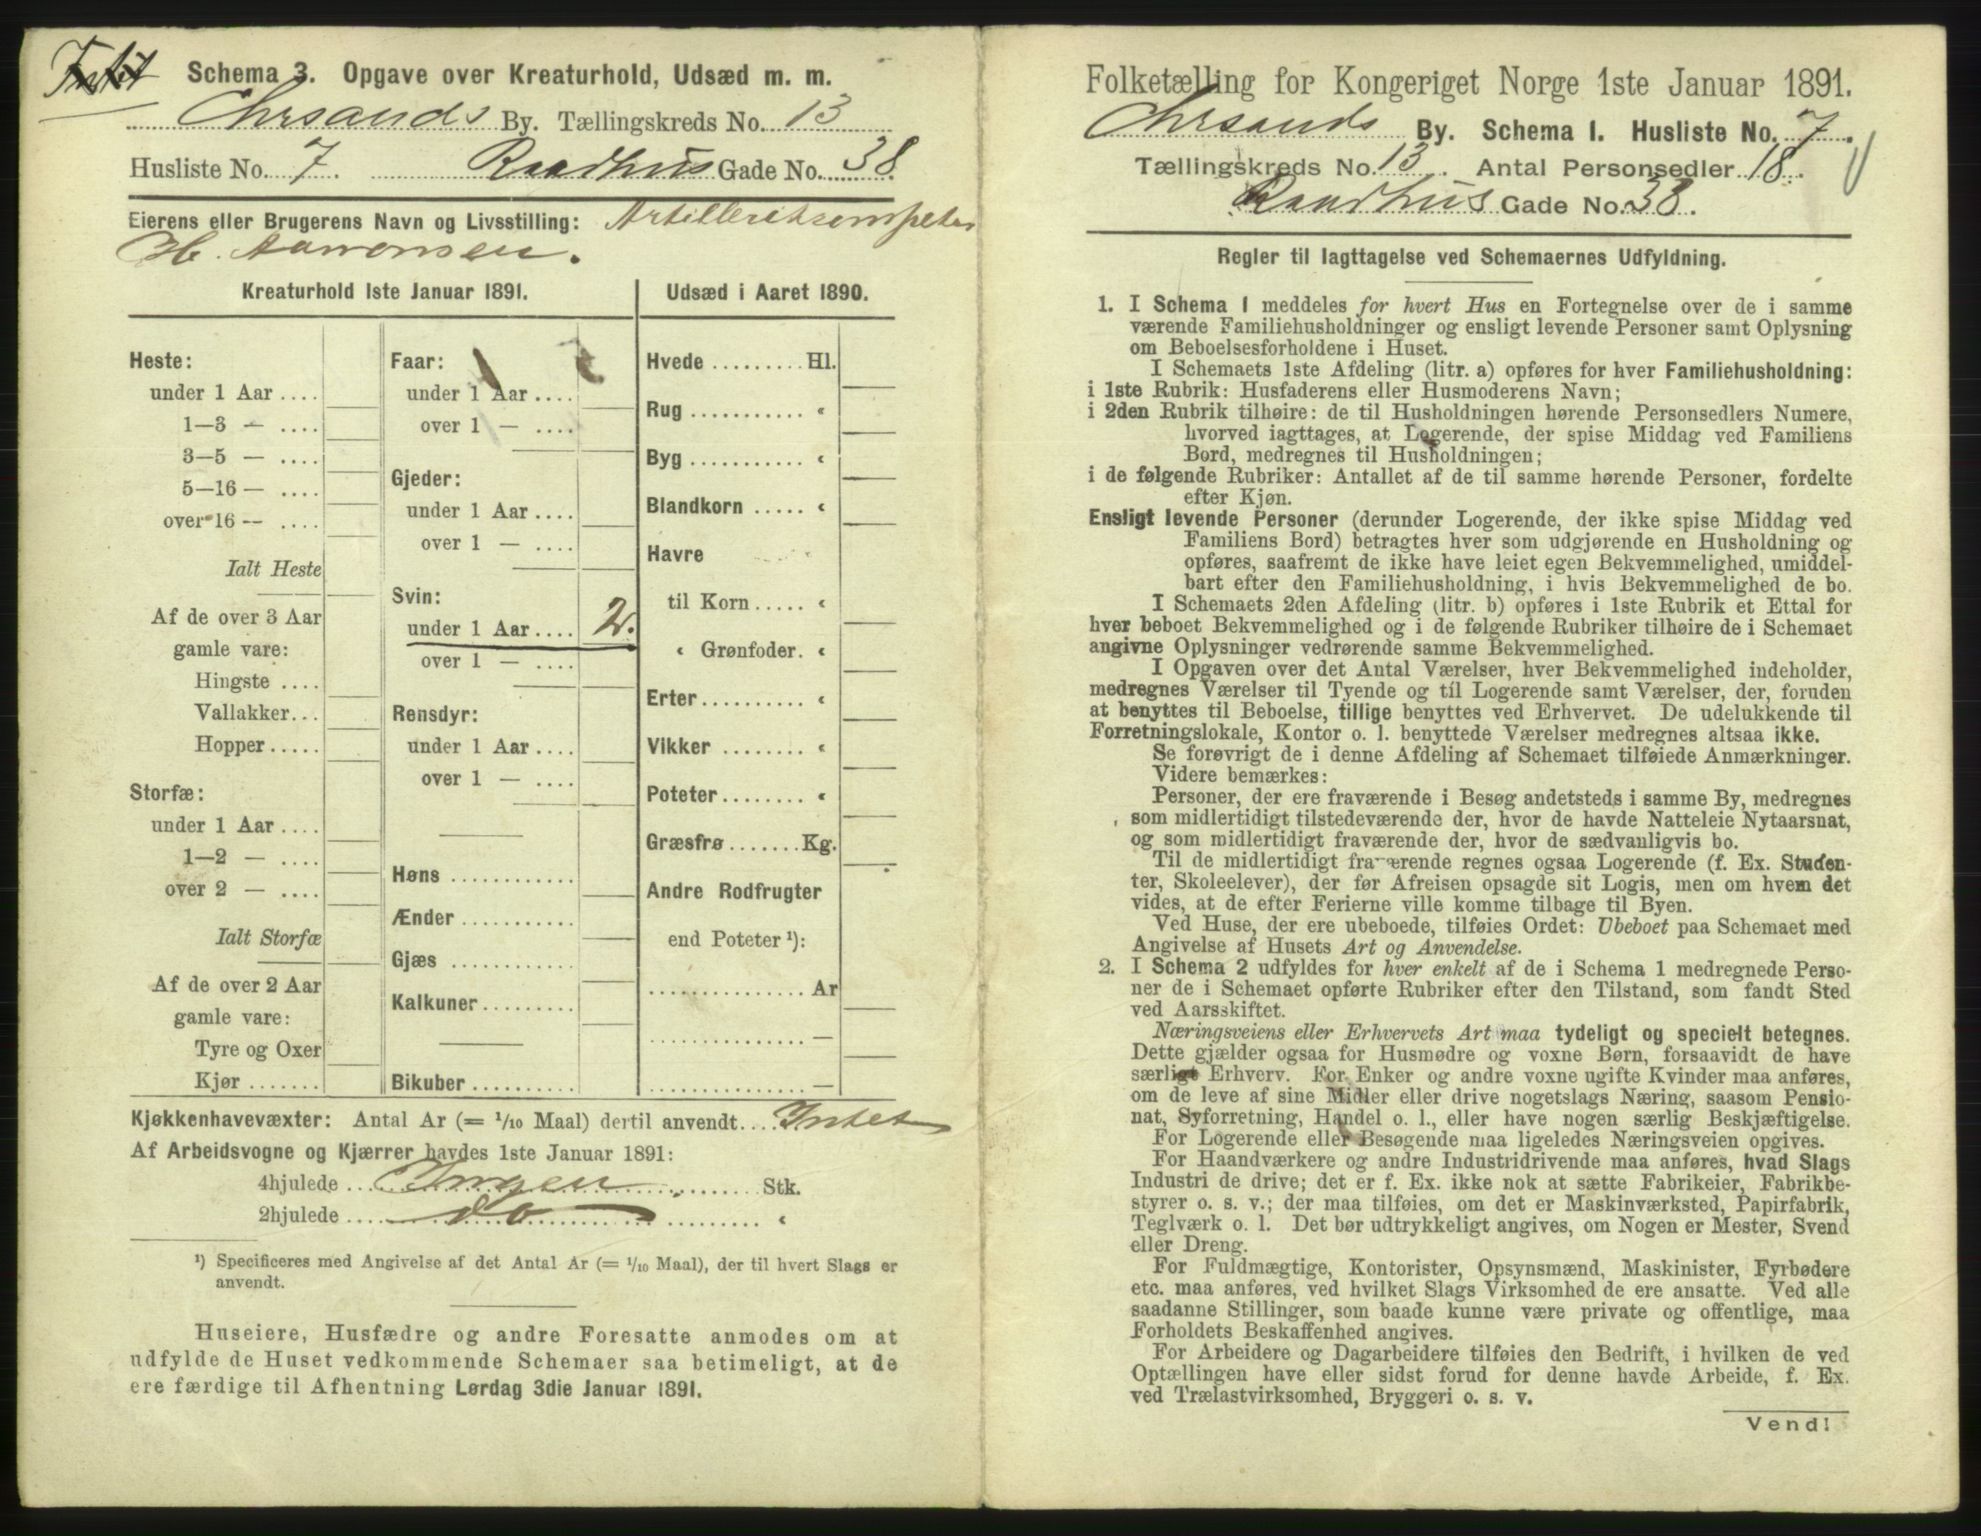 Intet
Schema 3. Opgave over Kreaturhold, Udsæd m. m.
Chrsands By. Tællingskreds No. 13
Husliste No. 7. Raadhus Gade No. 38.
Eierens eller Brugerens Navn og Livsstilling:
H. Aanonsen.
Kreaturhold 1ste Januar 1891.
Heste:
under 1 Aar ....
1—3 — ....
3—5 — ....
5—16 — ....
over 16 — ....
Ialt Heste
Af de over 3 Aar
gamle vare:
Hingste ....
Vallakker...
Hopper.....
Storfæ:
under 1 Aar ....
1—2 — ....
over 2 — ....
Ialt Storfæ
Af de over 2 Aar
gamle vare:
Tyre og Oxer
Kjør .......
Faar:
under 1 Aar ....
over 1 — ....
Gjeder:
under 1 Aar ....
over 1 — ....
Svin:
under 1 Aar .... 2.
over 1 — ....
Rensdyr:
under 1 Aar ....
over 1 — ....
Høns ............
Ænder ...........
Gjæs ............
Kalkuner.........
Bikuber ..........
Udsæd i Aaret 1890.
Hvede ......... Hl.
Rug ........... «
Byg ........... «
Blandkorn ..... «
Havre
til Korn ..... «
« Grønfoder. «
Erter .......... «
Vikker ........ «
Poteter ........ «
Græsfrø ....... Kg.
Andre Rodfrugter
end Poteter ¹):
............... Ar
............... —
............... —
Kjøkkenhavevæxter: Antal Ar (= 1/10 Maal) dertil anvendt.... Intet
Af Arbeidsvogne og Kjærrer havdes 1ste Januar 1891:
4hjulede .... Ingen ........ Stk.
2hjulede .... do ........ «
¹) Specificeres med Angivelse af det Antal Ar (= 1/10 Maal), der til hvert Slags er
anvendt.
Huseiere, Husfædre og andre Foresatte anmodes om at
udfylde de Huset vedkommende Schemaer saa betimeligt, at de
ere færdige til Afhentning Lørdag 3die Januar 1891.
Folketælling for Kongeriget Norge 1ste Januar 1891.
Chrsands By. Schema 1. Husliste No. 7.
Tællingskreds No. 13. Antal Personsedler 18.
Raadhus Gade No. 38.
Regler til Iagttagelse ved Schemaernes Udfyldning.
1. I Schema 1 meddeles for hvert Hus en Fortegnelse over de i samme
værende Familiehusholdninger og ensligt levende Personer samt Oplysning
om Beboelsesforholdene i Huset.
I Schemaets 1ste Afdeling (litr. a) opføres for hver Familiehusholdning:
i 1ste Rubrik: Husfaderens eller Husmoderens Navn;
i 2den Rubrik tilhøire: de til Husholdningen hørende Personsedlers Numere,
hvorved iagttages, at Logerende, der spise Middag ved Familiens
Bord, medregnes til Husholdningen;
i de følgende Rubriker: Antallet af de til samme hørende Personer, fordelte
efter Kjøn.
Ensligt levende Personer (derunder Logerende, der ikke spise Middag ved
Familiens Bord) betragtes hver som udgjørende en Husholdning og
opføres, saafremt de ikke have leiet egen Bekvemmelighed, umiddel-
bart efter den Familiehusholdning, i hvis Bekvemmelighed de bo.
I Schemaets 2den Afdeling (litr. b) opføres i 1ste Rubrik et Ettal for
hver beboet Bekvemmelighed og i de følgende Rubriker tilhøire de i Schemaet
angivne Oplysninger vedrørende samme Bekvemmelighed.
I Opgaven over det Antal Værelser, hver Bekvemmelighed indeholder,
medregnes Værelser til Tyende og til Logerende samt Værelser, der, foruden
at benyttes til Beboelse, tillige benyttes ved Erhvervet. De udelukkende til
Forretningslokale, Kontor o. l. benyttede Værelser medregnes altsaa ikke.
Se forøvrigt de i denne Afdeling af Schemaet tilføiede Anmærkninger.
Videre bemærkes:
Personer, der ere fraværende i Besøg andetsteds i samme By, medregnes
som midlertidigt tilstedeværende der, hvor de havde Natteleie Nytaarsnat,
og som midlertidigt fraværende der, hvor de sædvanligvis bo.
Til de midlertidigt fraværende regnes ogsaa Logerende (f. Ex. Studen-
ter, Skoleelever), der før Afreisen opsagde sit Logis, men om hvem det
vides, at de efter Ferierne ville komme tilbage til Byen.
Ved Huse, der ere ubeboede, tilføies Ordet: Ubeboet paa Schemaet med
Angivelse af Husets Art og Anvendelse.
2. I Schema 2 udfyldes for hver enkelt af de i Schema 1 medregnede Perso-
ner de i Schemaet opførte Rubriker efter den Tilstand, som fandt Sted
ved Aarsskiftet.
Næringsveiens eller Erhvervets Art maa tydeligt og specielt betegnes.
Dette gjælder ogsaa for Husmødre og voxne Børn, forsaavidt de have
særligt Erhverv. For Enker og andre voxne ugifte Kvinder maa anføres,
om de leve af sine Midler eller drive nogetslags Næring, saasom Pensio-
nat, Syforretning, Handel o. l., eller have nogen særlig Beskjæftigelse.
For Logerende eller Besøgende maa ligeledes Næringsveien opgives.
For Haandværkere og andre Industridrivende maa anføres, hvad Slags
Industri de drive; det er f. Ex. ikke nok at sætte Fabrikeier, Fabrikbe-
styrer o. s. v.; der maa tilføies, om det er Maskinværksted, Papirfabrik,
Teglværk o. l. Det bør udtrykkeligt angives, om Nogen er Mester, Svend
eller Dreng.
For Fuldmægtige, Kontorister, Opsynsmænd, Maskinister, Fyrbødere
etc. maa anføres, ved hvilket Slags Virksomhed de ere ansatte. Ved alle
saadanne Stillinger, som baade kunne være private og offentlige, maa
Forholdets Beskaffenhed angives.
For Arbeidere og Dagarbeidere tilføies den Bedrift, i hvilken de ved
Optællingen have eller sidst forud for denne havde Arbeide, f. Ex.
ved Trælastvirksomhed, Bryggeri o. s. v.
Vend!